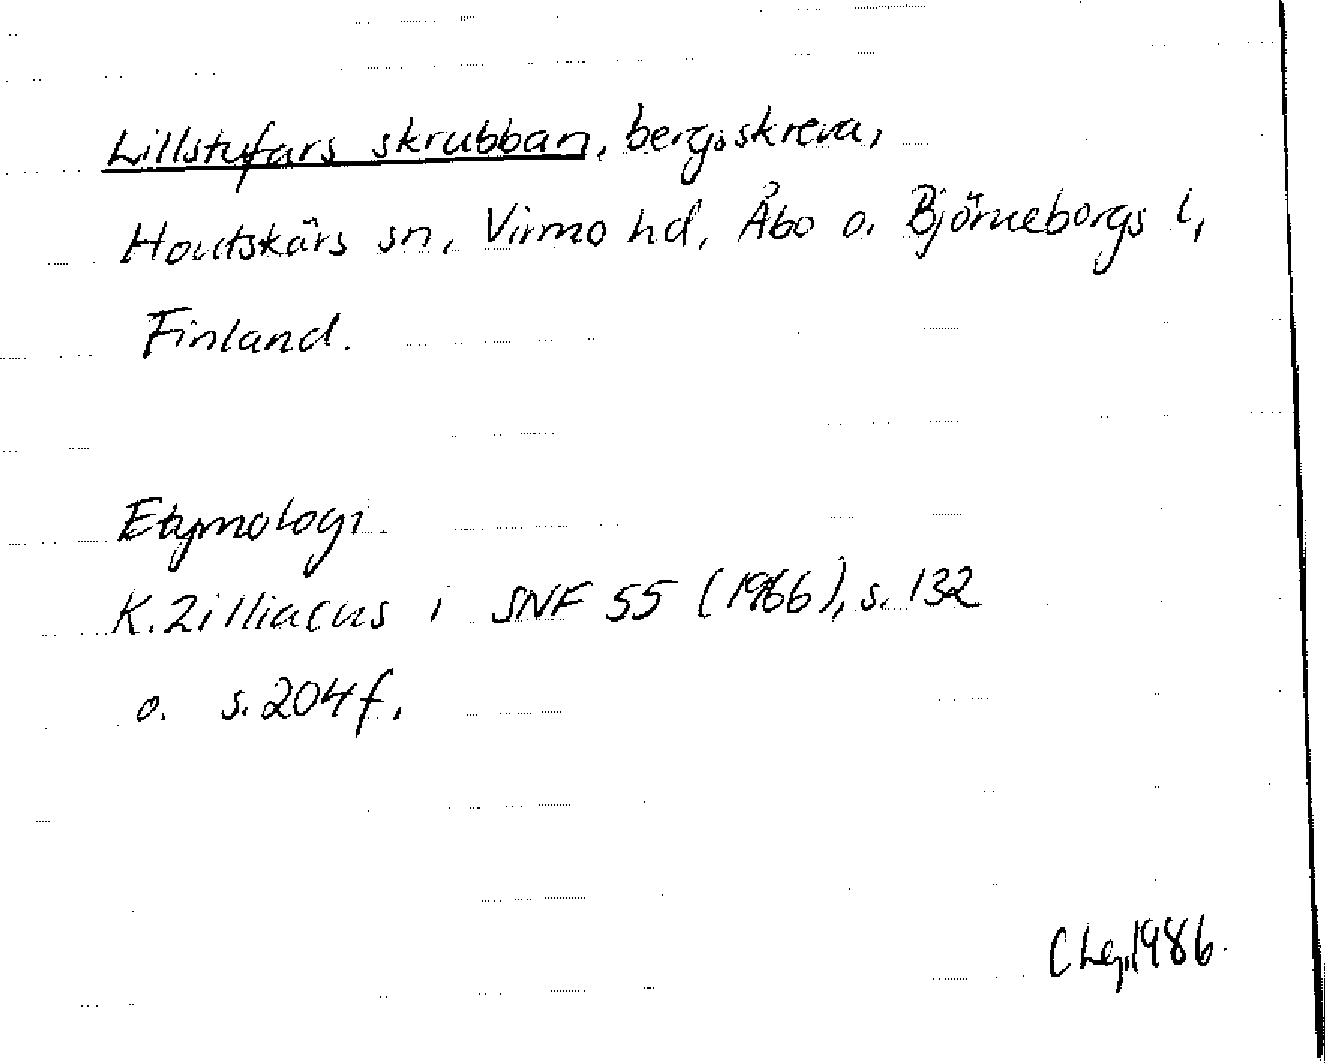 Lillstufars skrubban, bergsskreva,
Houtskärs sn, Virmo hd, Åbo o. Björneborgs l,
Finland.
Etymologi
K. Zilliacus i SNF 55 (1966), s. 132
o. s. 204 f.
CLg, 1986.